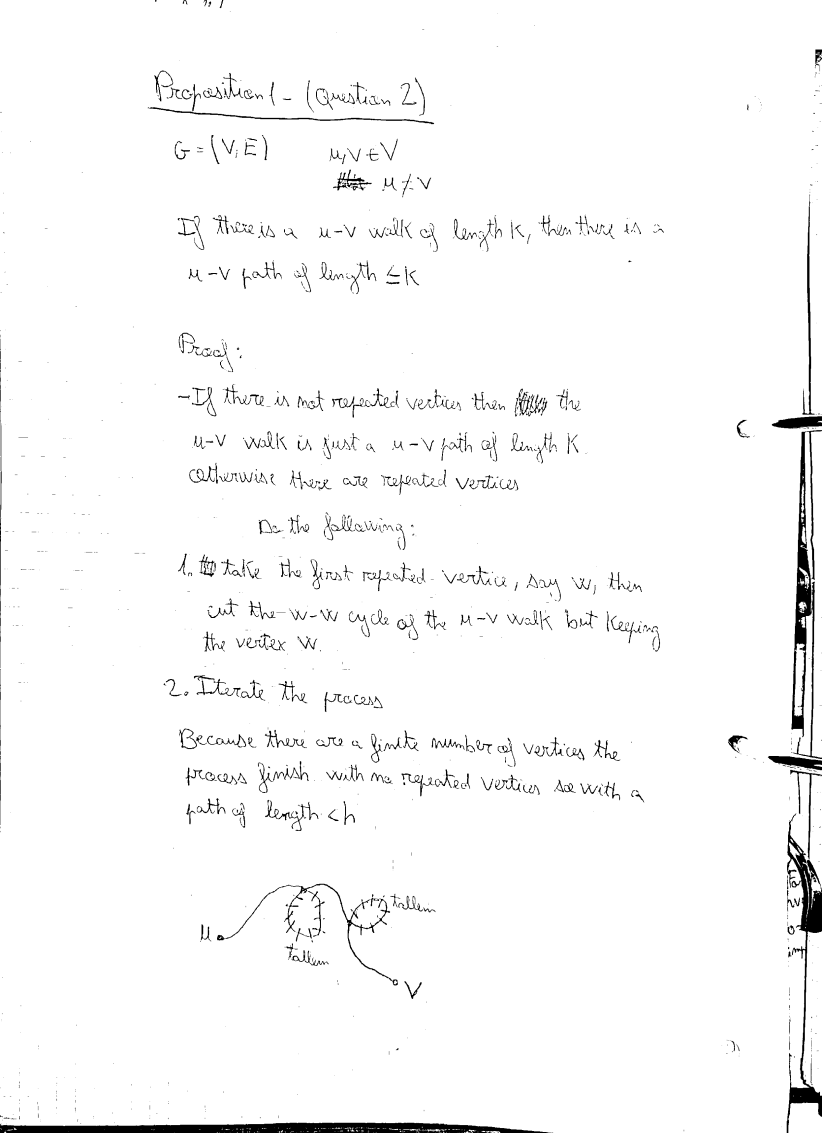 Proposition 1 - (Question 2)
G = (V, E) u, v ∈ V
u ≠ v
If there is a u-v walk of length K, then there is a
u-v path of length ≤ K
Proof:
- If there is not repeated vertices then the
u-v walk is just a u-v path of length K.
otherwise there are repeated vertices
Do the following:
1. take the first repeated vertice, say w, then
cut the w-w cycle of the u-v walk but keeping
the vertex w.
2. Iterate the process
Because there are a finite number of vertices the
process finish with no repeated vertices so with a
path of length < h
tallem
u
tallem
v